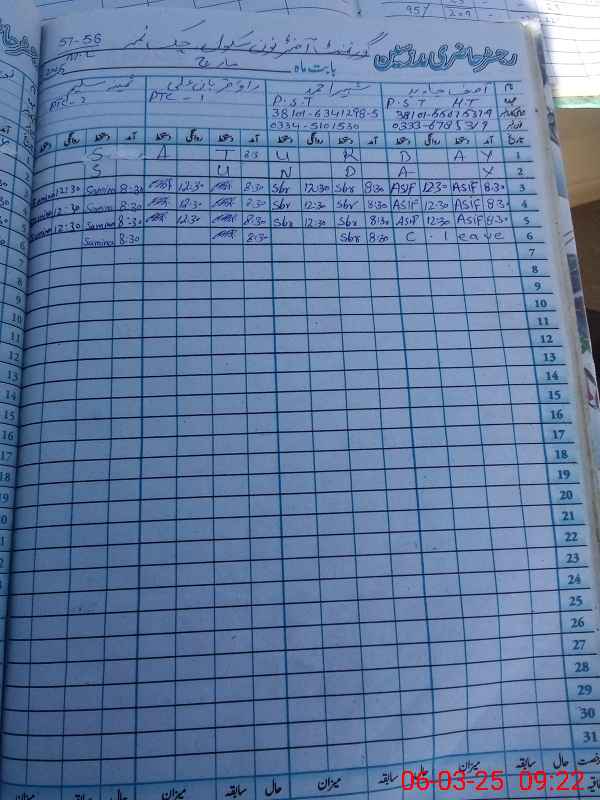 95% 209
رجسٹر حاضری مدرسین گورنمنٹ آفٹر نون سکول چک نمبر 57-58
بابت ماہ مارچ
نام آصف جاوید شبیر احمد راؤ قربان علی ثمینہ سلیم
P.S.T HT P.S.T PTC-1 PTC-2
38101-6341298-5
0333-6785319 0334-5101530
تاریخ آمد دستخط روانگی دستخط آمد دستخط روانگی دستخط آمد دستخط روانگی دستخط آمد دستخط روانگی
S A T U R D A Y 1
S U N D A Y 2
12:30 Samina 8:30 12:30 8:30 Sbr 12:30 Sbr 8:30 ASIF 12:30 ASIF 8:30 3
12:30 Samina 8:30 12:30 8:30 Sbr 12:30 Sbr 8:30 ASIF 12:30 ASIF 8:30 4
Samina 12:30 Samina 8:30 12:30 8:30 Sbr 12:30 Sbr 8:30 ASIF 12:30 ASIF 8:30 5
Samina 8:30 8:30 Sbr 8:30 C.leave 6
7
8
9
10
11
12
13
14
15
16
17
18
19
20
21
22
23
24
25
26
27
28
29
30
31
رخصت حال سابقہ میزان حال سابقہ میزان حال سابقہ میزان حال سابقہ میزان
06-03-25 09:22